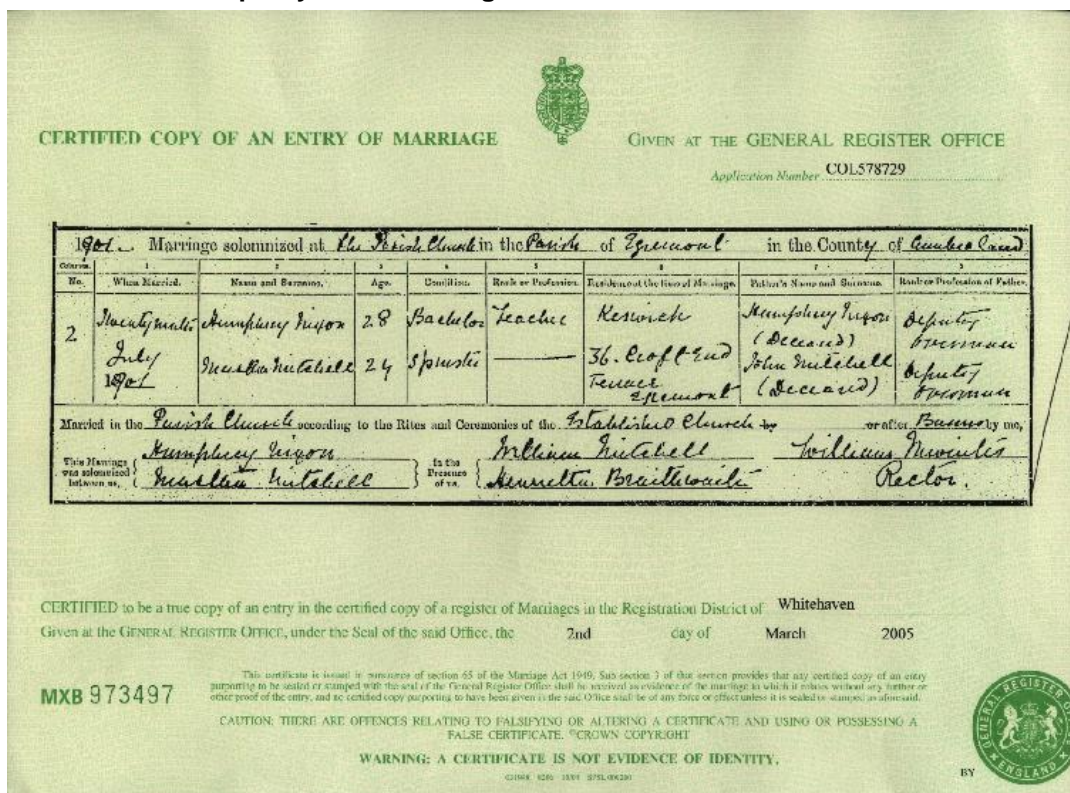 CERTIFIED COPY OF AN ENTRY OF MARRIAGE
GIVEN AT THE GENERAL REGISTER OFFICE
Application Number COL578729
1901. Marriage solemnized at the Parish Church in the Parish of Egremont in the County of Cumberland
Columns 1 2 3 4 5 6 7 8
No. When Married. Name and Surname. Age. Condition. Rank or Profession. Residence at the time of Marriage. Father's Name and Surname. Rank or Profession of Father.
2 July 1901 Humphrey Nixon 28 Bachelor Teacher Keswick Humphrey Nixon (Deceased) Deputy Overman
Martha Mitchell 24 Spinster 36. Croft End Terrace Egremont John Mitchell (Deceased) Deputy Overman
Married in the Parish Church according to the Rites and Ceremonies of the Established Church by or after Banns by me,
This Marriage was solemnized between us, Humphrey Nixon Martha Mitchell
In the Presence of us. William Mitchell Henrietta Braithwaite
William Rector.
CERTIFIED to be a true copy of an entry in the certified copy of a register of Marriages in the Registration District of Whitehaven
Given at the GENERAL REGISTER OFFICE, under the Seal of the said Office, the 2nd day of March 2005
MXB 973497
This certificate is issued in pursuance of section 65 of the Marriage Act 1949. Sub section 3 of that section provides that any certified copy of an entry
purporting to be sealed or stamped with the seal of the General Register Office shall be received as evidence of the marriage to which it relates without any further or
other proof of the entry, and no certified copy purporting to have been given in the said Office shall be of any force or effect unless it is sealed or stamped as aforesaid.
CAUTION: THERE ARE OFFENCES RELATING TO FALSIFYING OR ALTERING A CERTIFICATE AND USING OR POSSESSING A
FALSE CERTIFICATE. ©CROWN COPYRIGHT
WARNING: A CERTIFICATE IS NOT EVIDENCE OF IDENTITY.
BY
GENERAL REGISTER OFFICE ENGLAND